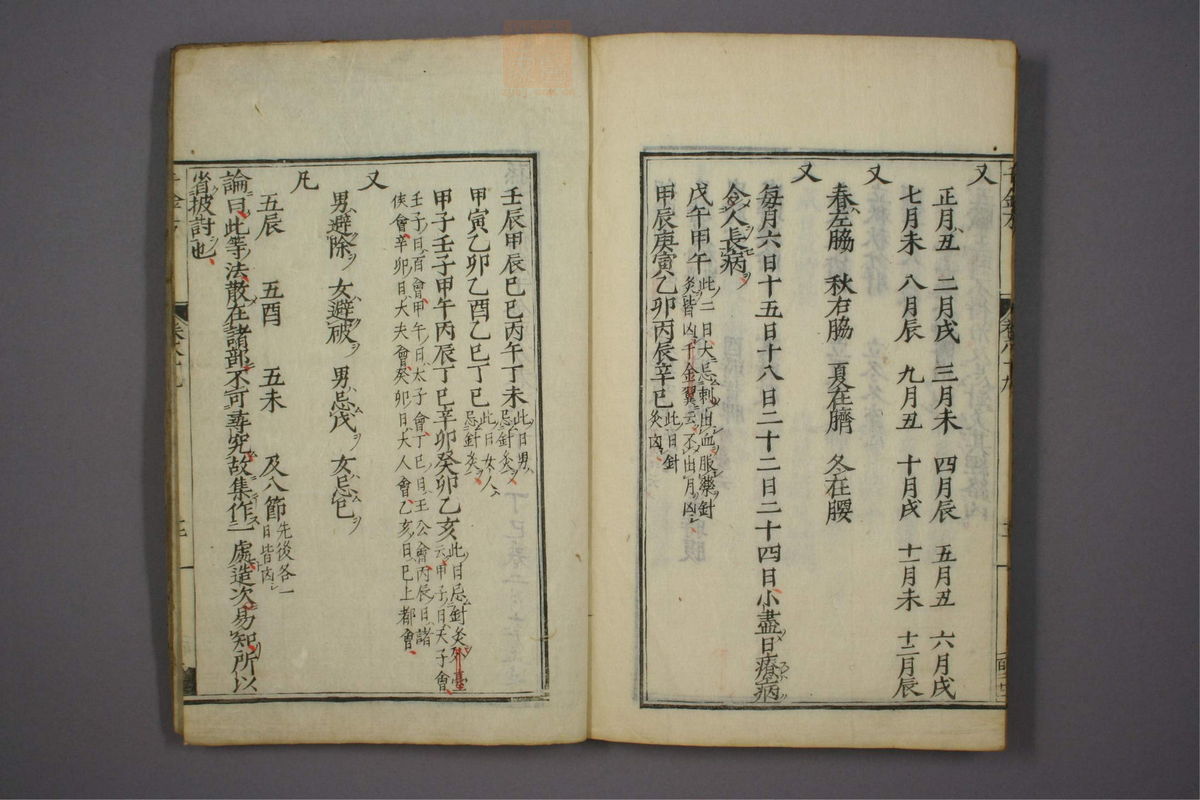 又
正月丑 二月戌 三月未 四月辰 五月丑 六月戌
七月未 八月辰 九月丑 十月戌 十一月未 十二月辰
又
春左脇 秋右脇 夏在臍 冬在腰
又
每月六日十五日十八日二十二日二十四日小盡日療病
令人長病
戊午甲午此二日大忌刺出血服藥針灸皆凶千金翼云不出月凶
甲辰庚寅乙卯丙辰辛巳此日針灸凶
壬辰甲辰己巳丙午丁未此日男忌針灸
甲寅乙卯乙酉乙巳丁巳此日女人忌針灸
甲子壬子甲午丙辰丁巳辛卯癸卯乙亥此日忌針灸外臺云甲子日天子會
壬子日百會甲午日太子會丁巳日王公會丙辰日諸
侯會辛卯日大夫會癸卯日大人會乙亥日已上都會
又
男避除 女避破 男忌戊 女忌巳
凡
五辰 五酉 五未 及八節先後各一日皆凶
論曰此等法散在諸部不可尋究故集作一處造次易知所以
省披討也